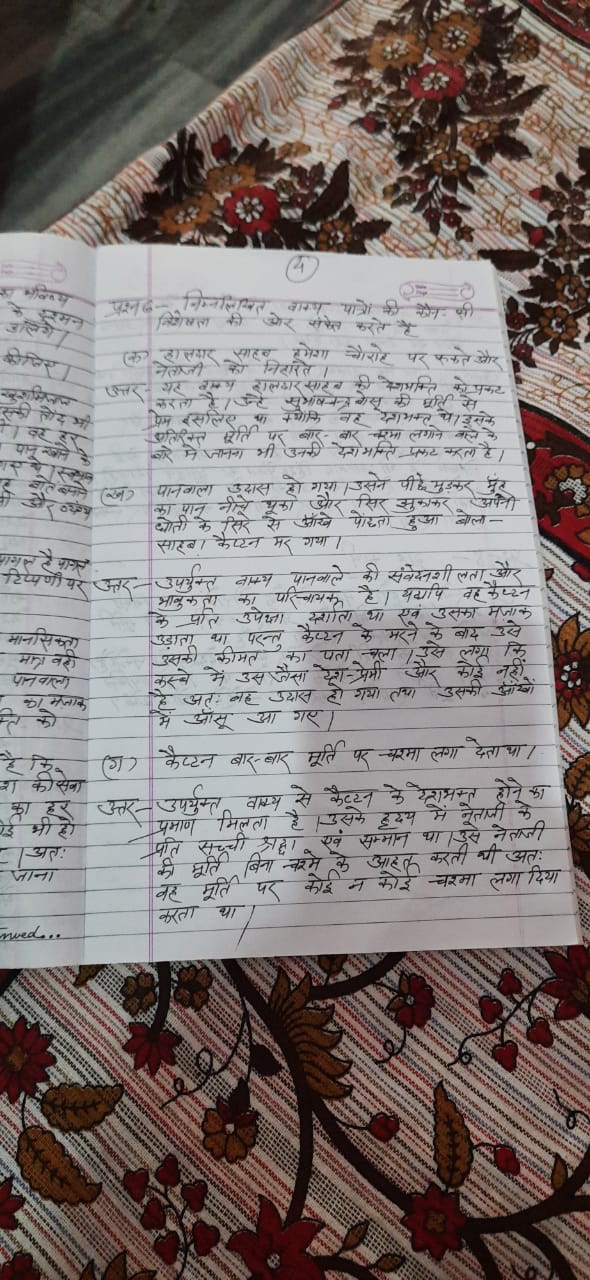 भविष्य
कीजिए।
वह हर
और व्यंग्य
पागल है पागल
टिप्पणी पर
मानसिकता
पानवाला
का मजाक
है कि
की सेवा
का हर
भी हो
अतः
जाना
4
प्रश्न 6- निम्नलिखित वाक्य पात्रों की कौन-सी
विशेषता की ओर संकेत करते है
(क) हालदार साहब हमेशा चौराहे पर रूकते और
नेताजी को निहारते।
उत्तर- यह वाक्य हालदार साहब की देशभक्ति को प्रकट
करता है। उन्हें सुभाषचन्द्र बोस की मूर्ति से
प्रेम इसलिए था क्योंकि वह देशभक्त थे। इसके
अतिरिक्त मूर्ति पर बार-बार चश्मा लगाने वाले के
बारे में जानना भी उनकी देशभक्ति प्रकट करता है।
(ख) पानवाला उदास हो गया। उसने पीछे मुड़कर मुंह
का पान नीचे थूका और सिर झुकाकर अपनी
धोती के सिरे से आँखे पोंछता हुआ बोला-
साहब! कैप्टन मर गया।
उत्तर- उपर्युक्त वाक्य पानवाले की संवेदनशीलता और
भावुकता का परिचायक है। यद्यपि वह कैप्टन
के प्रति उपेक्षा दर्शाता था एवं उसका मजाक
उड़ाता था परन्तु कैप्टन के मरने के बाद उसे
उसकी कीमत का पता चला। उसे लगा कि
कस्बे में उस जैसा देश-प्रेमी और कोई नहीं
है अतः वह उदास हो गया तथा उसकी आंखों
में आँसू आ गए।
(ग) कैप्टन बार-बार मूर्ति पर चश्मा लगा देता था।
उत्तर- उपर्युक्त वाक्य से कैप्टन के देशभक्त होने का
प्रमाण मिलता है। उसके हृदय में नेताजी के
प्रति सच्ची श्रद्धा एवं सम्मान था। उसे नेताजी
की मूर्ति बिना चश्मे के आहत करती थी अतः
वह मूर्ति पर कोई न कोई चश्मा लगा दिया
करता था।